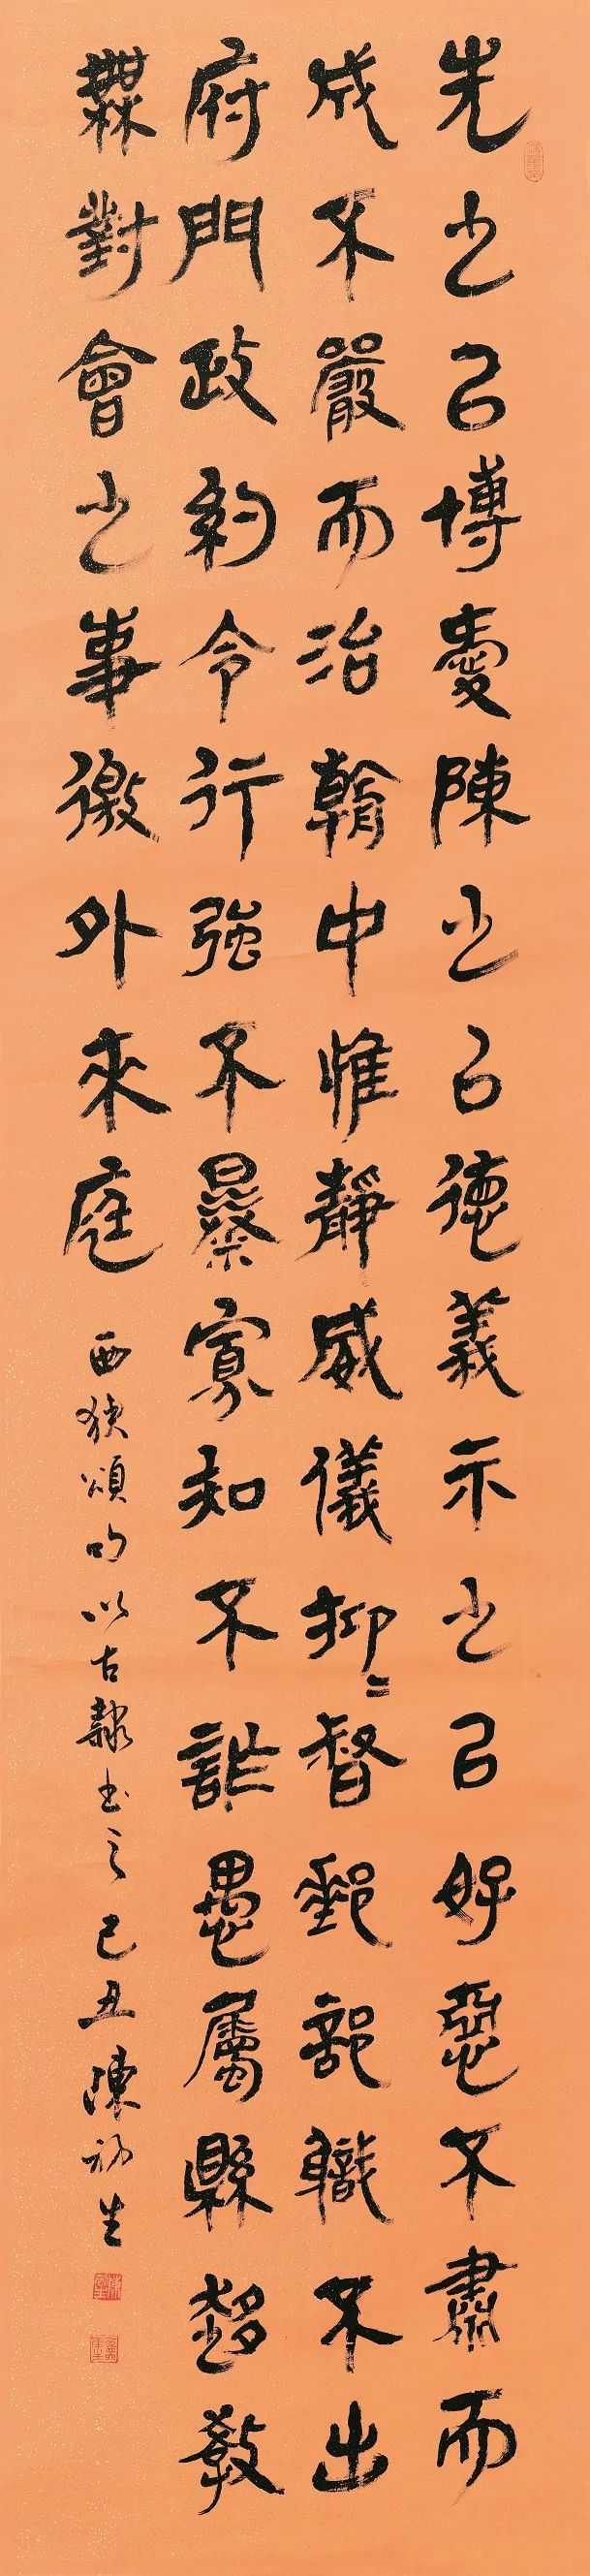 先之㠯博愛陳之㠯德義示之㠯好惡不肅而
成不嚴而治朝中惟靜威儀抑〻督郵部職不出
府門政約令行強不暴寡知不詐愚屬縣趍教
無對會之事徼外來庭 西狹頌句以古隸書之己丑陳初生